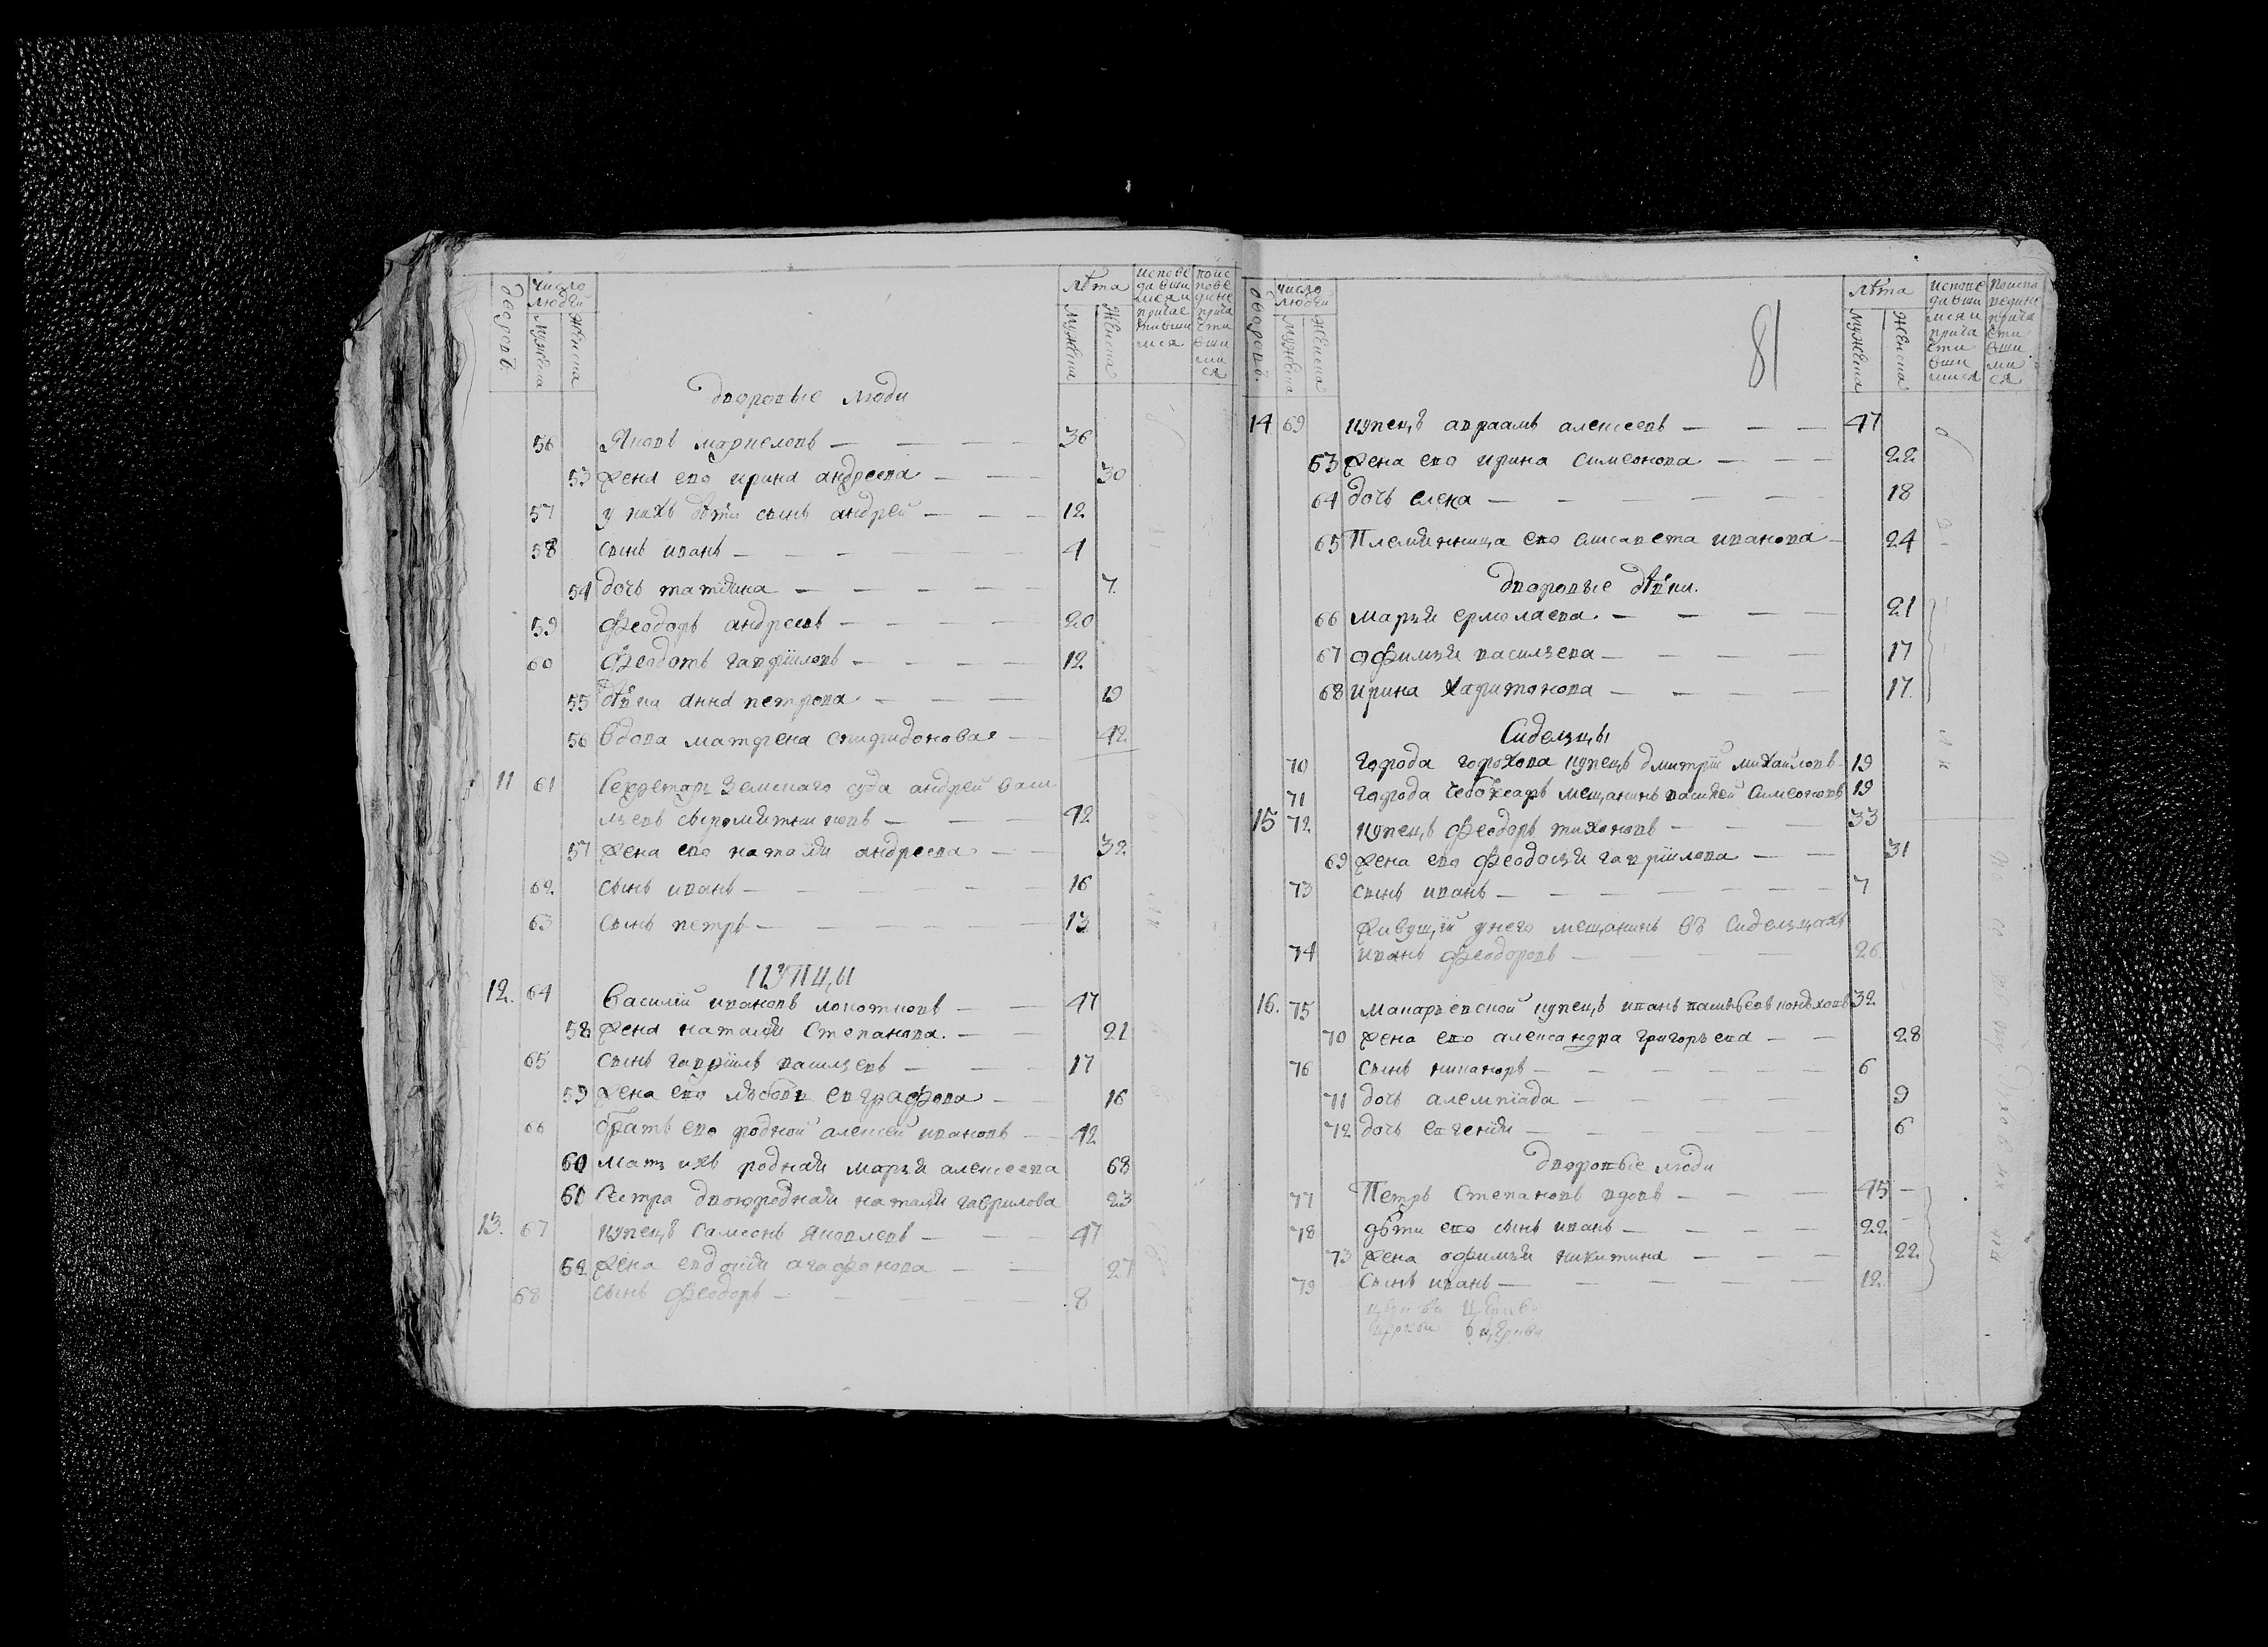 дворовъ.
число людей
мужеска
женска
лѣта
мужеска
женска
исповѣдавшимся и причастившимся
дворовые люди
56 Яковъ — 36
53 жена ево ирина андреева — 30
57 у нихъ дѣти сынъ андрей — 12
58 сынъ иванъ — 4
54 дочь татияна — 7
59 Феодоръ андреевъ — 20
60 Феодотъ гавриловъ — 12
55 дѣвка анна петрова — 19
56 вдова матрена спиридонова — 42
11 61 Секретарь Земскаго суда андрей васи
льевъ сыромятниковъ — 42
57 жена ево наталія андреева — 32
62 сынъ иванъ — 16
63 сынъ петръ — 13
КУПЦЫ
12. 64 Василей ивановъ — 47
58 жена наталія Степанова — 21
65 сынъ гавріилъ васильевъ — 17
59 жена ево любовь евграфова — 16
66 братъ ево родной алексей ивановъ — 42
60 мать ихъ родная марья алексеева 68
61 Сестра двоюродная наталия гаврилова 23
13. 67 купецъ Самсонъ яковлевъ — 47
62 жена евдокия агафонова — 27
68 сынъ феодоръ — 8
дворовъ.
число людей
мужеска
женска
81
лѣта
мужеска
женска
14 69 купецъ авраамъ алексеевъ — 47
63 жена ево ирина симеонова — 22
64 дочь елена — 18
65 Племянница ево елисавета иванова — 24
дворовые дѣвки.
66 марья ермолаева — 21
67 офимья васильева — 17
68 ирина харитонова — 17
Сидельцы
70 города горохова купецъ дмитрій михайловъ 19
71 города чебоксаръ мещанинъ василей симеоновъ 19
15 72 купецъ феодоръ тихоновъ — 33
69 жена ево феодосья гавріилова — 31
73 сынъ иванъ — 7
живущій унего мещанинъ въ сидельцахъ
74 иванъ феодоровъ — 26
16. 75 макарьевской купецъ иванъ 32
70 жена ево александра григорьева — 28
76 сынъ никаноръ — 6
71 дочь алемпіада — 9
72 дочь евгенія — 6
дворовые люди
77 Петръ Степановъ вдовъ — 45
78 дѣти ево сынъ иванъ — 22
73 жена офимья никитина — 22
79 сынъ иванъ — 12